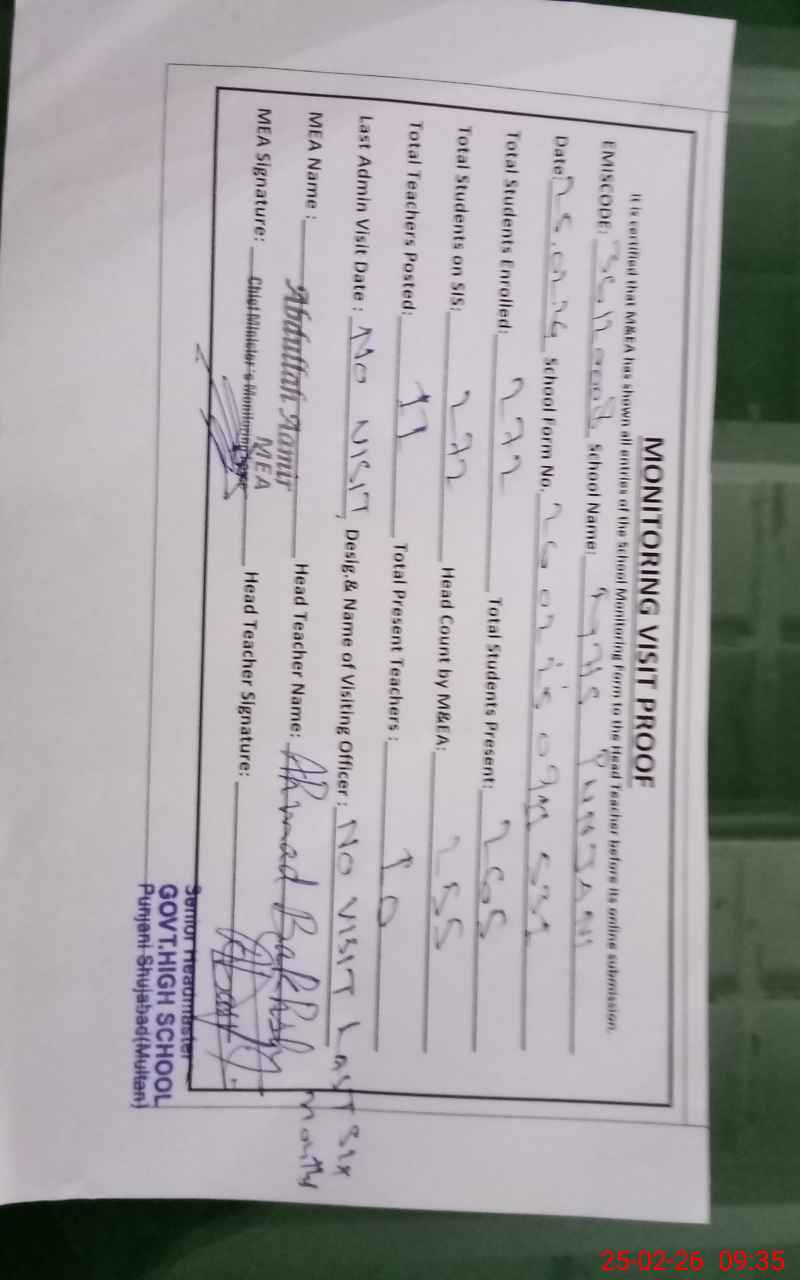 MONITORING VISIT PROOF
It is certified that M&EA has shown all entries of the School Monitoring Form to the Head Teacher before its online submission.
EMISCODE: School Name: PUNJANI
Date: School Form No.
Total Students Enrolled: 272 Total Students Present: 265
Total Students on SIS: 272 Head Count by M&EA: 255
Total Teachers Posted: 11 Total Present Teachers : 10
Last Admin Visit Date : NO VISIT, Desig.& Name of Visiting Officer : NO VISIT LAST SIX Month
MEA Name : Abdullah Aamir Head Teacher Name: Ahmad Bakhsh
MEA
Chief Minister's Monitoring
MEA Signature: Head Teacher Signature:
Senior Headmaster
GOVT.HIGH SCHOOL
Punjani Shujabad(Multan)
25-02-26 09:35